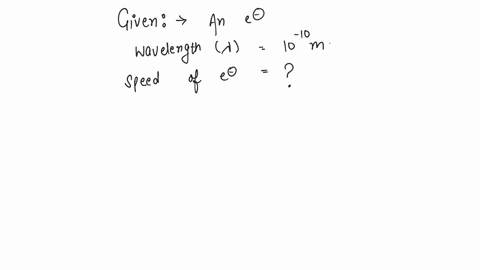 Given: → An e⊖
wavelength (λ) = 10⁻¹⁰ m.
speed of e⊖ = ?